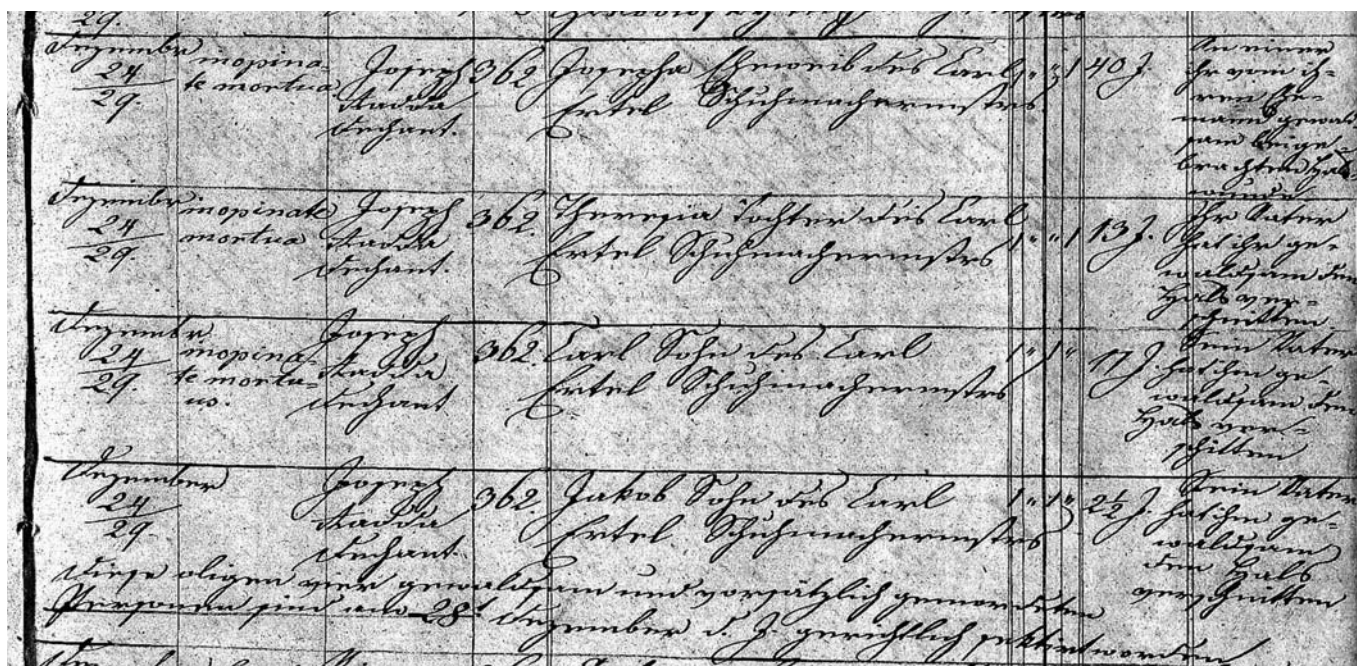 29.
Dezembr
24
29.
inopina-
te mortua
Joseph
Dechant.
362.
Josepha Eheweib des Carl
Ertel Schuhmachermstrs
1 " " 1
40 J.
An einer
ihr vom ih-
ren Ehe-
mann gewalt
sam beige-
brachten Hals-
wunde
Dezembr
24
29.
inopinate
mortua
Joseph
Dechant.
362.
Theresia Tochter des Carl
Ertel Schuhmachermstrs
1 " " 1
13 J.
Ihr Vater
hat ihr ge-
waldsam den
Hals ver-
schnitten
Dezembr
24
29.
inopina-
te mortu-
us.
Joseph
Dechant
362.
Carl Sohn des Carl
Ertel Schuhmachermstrs
1 " 1 "
Sein Vater
hat ihn ge-
waldsam den
Hals ver-
schitten
Dezember
24
29.
Joseph
Dechant.
362.
Jakob Sohn des Carl
Ertel Schuhmachermstrs
1 " 1 "
2½ J.
Sein Vater
hat ihn ge-
waldsam
den Hals
verschnitten
Diese obigen vier gewaldsam und vorsätzlich gemordeten
Personen sind am 28t Dezember d. J. gerichtlich sektirt worden